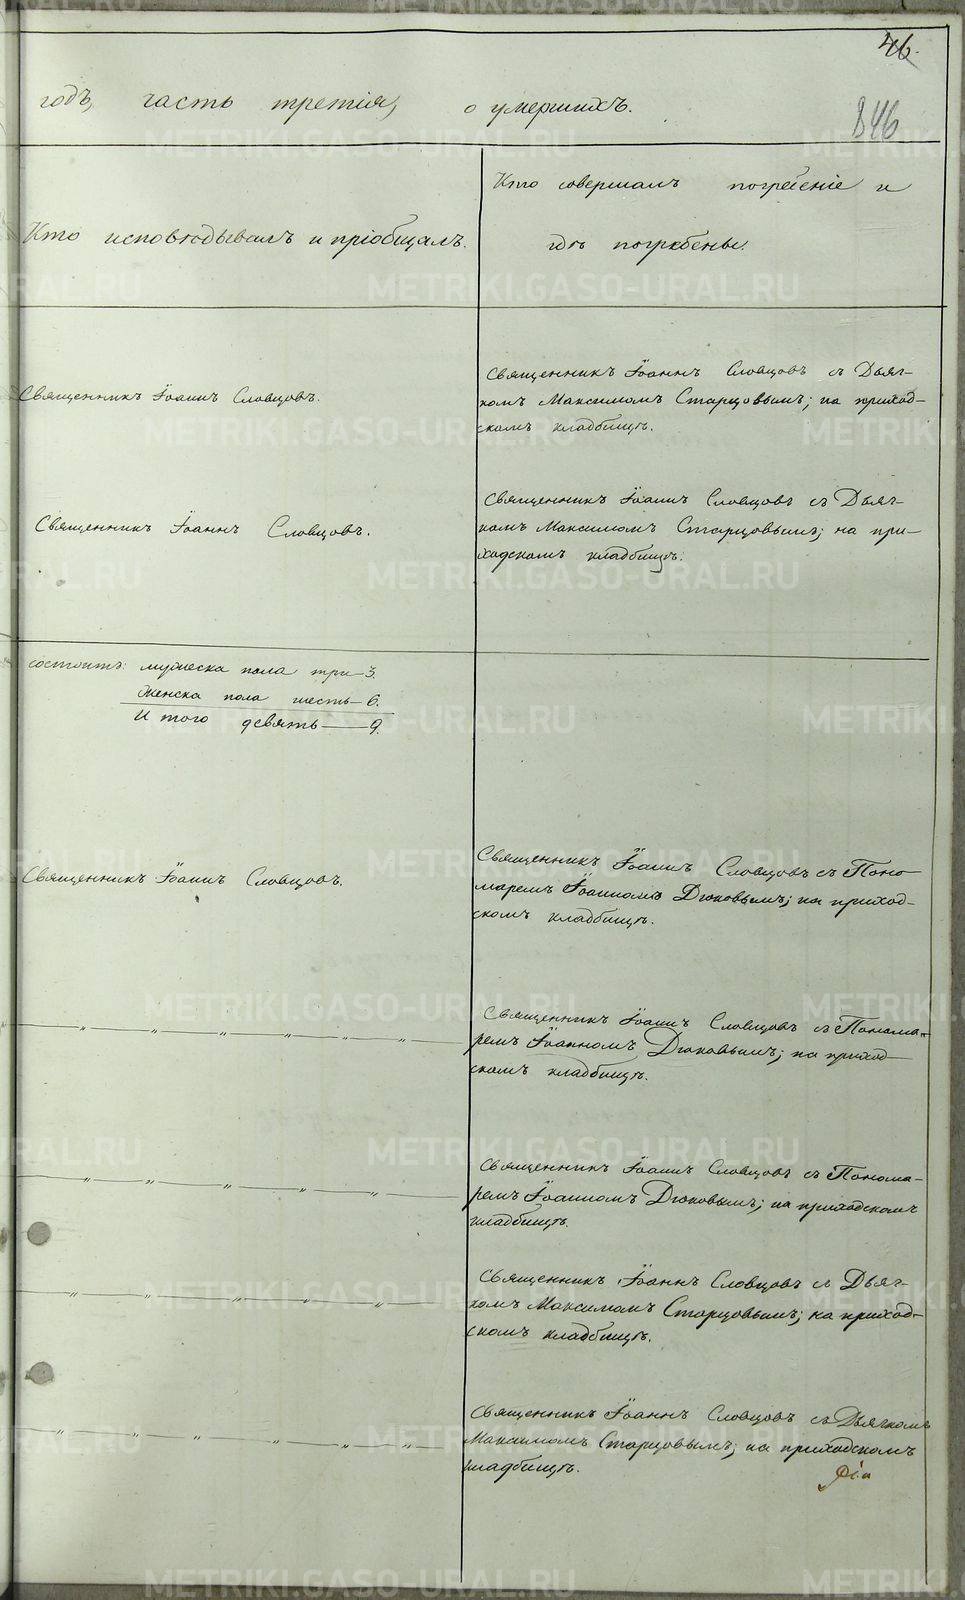 46.
846
годъ, часть третія, о умершихъ.
Кто исповѣдывалъ и пріобщалъ.
Кто совершалъ погребеніе и
гдѣ погребены.
Священникъ Іоаннъ Словцовъ.
Священникъ Іоаннъ Словцовъ съ Дьяч-
комъ Максимомъ Старцовымъ; на приход-
скомъ кладбищѣ.
Священникъ Іоаннъ Словцовъ.
Священникъ Іоаннъ Словцовъ съ Дьяч-
комъ Максимомъ Старцовымъ; на при-
ходскомъ кладбищѣ.
состоитъ: мужеска пола три—3.
Женска пола шесть—6.
И того девять—9.
Священникъ Іоаннъ Словцовъ.
Священникъ Іоаннъ Словцовъ съ Поно
маремъ Іоанномъ Дюковымъ; на приход-
скомъ кладбищѣ.
— „ — „ — „ — „ — „ — „ —
Священникъ Іоаннъ Словцовъ съ Понома-
ремъ Іоанномъ Дюковымъ; на приход—
скомъ кладбищѣ.
— „ — „ — „ — „ — „ —
Священникъ Іоаннъ Словцовъ съ Понома-
ремъ Іоанномъ Дюковымъ; на приходскомъ
кладбищѣ.
— „ — „ — „ — „ — „ —
Священникъ Іоаннъ Словцовъ съ Дьяч-
комъ Максимомъ Старцовымъ; на приход-
скомъ кладбищѣ.
— „ — „ — „ — „ — „ — „ —
Священникъ Іоаннъ Словцовъ съ Дьячкомъ
Максимомъ Старцовымъ; на приходскомъ
кладбищѣ.
METRIKI.GASO-URAL.RU